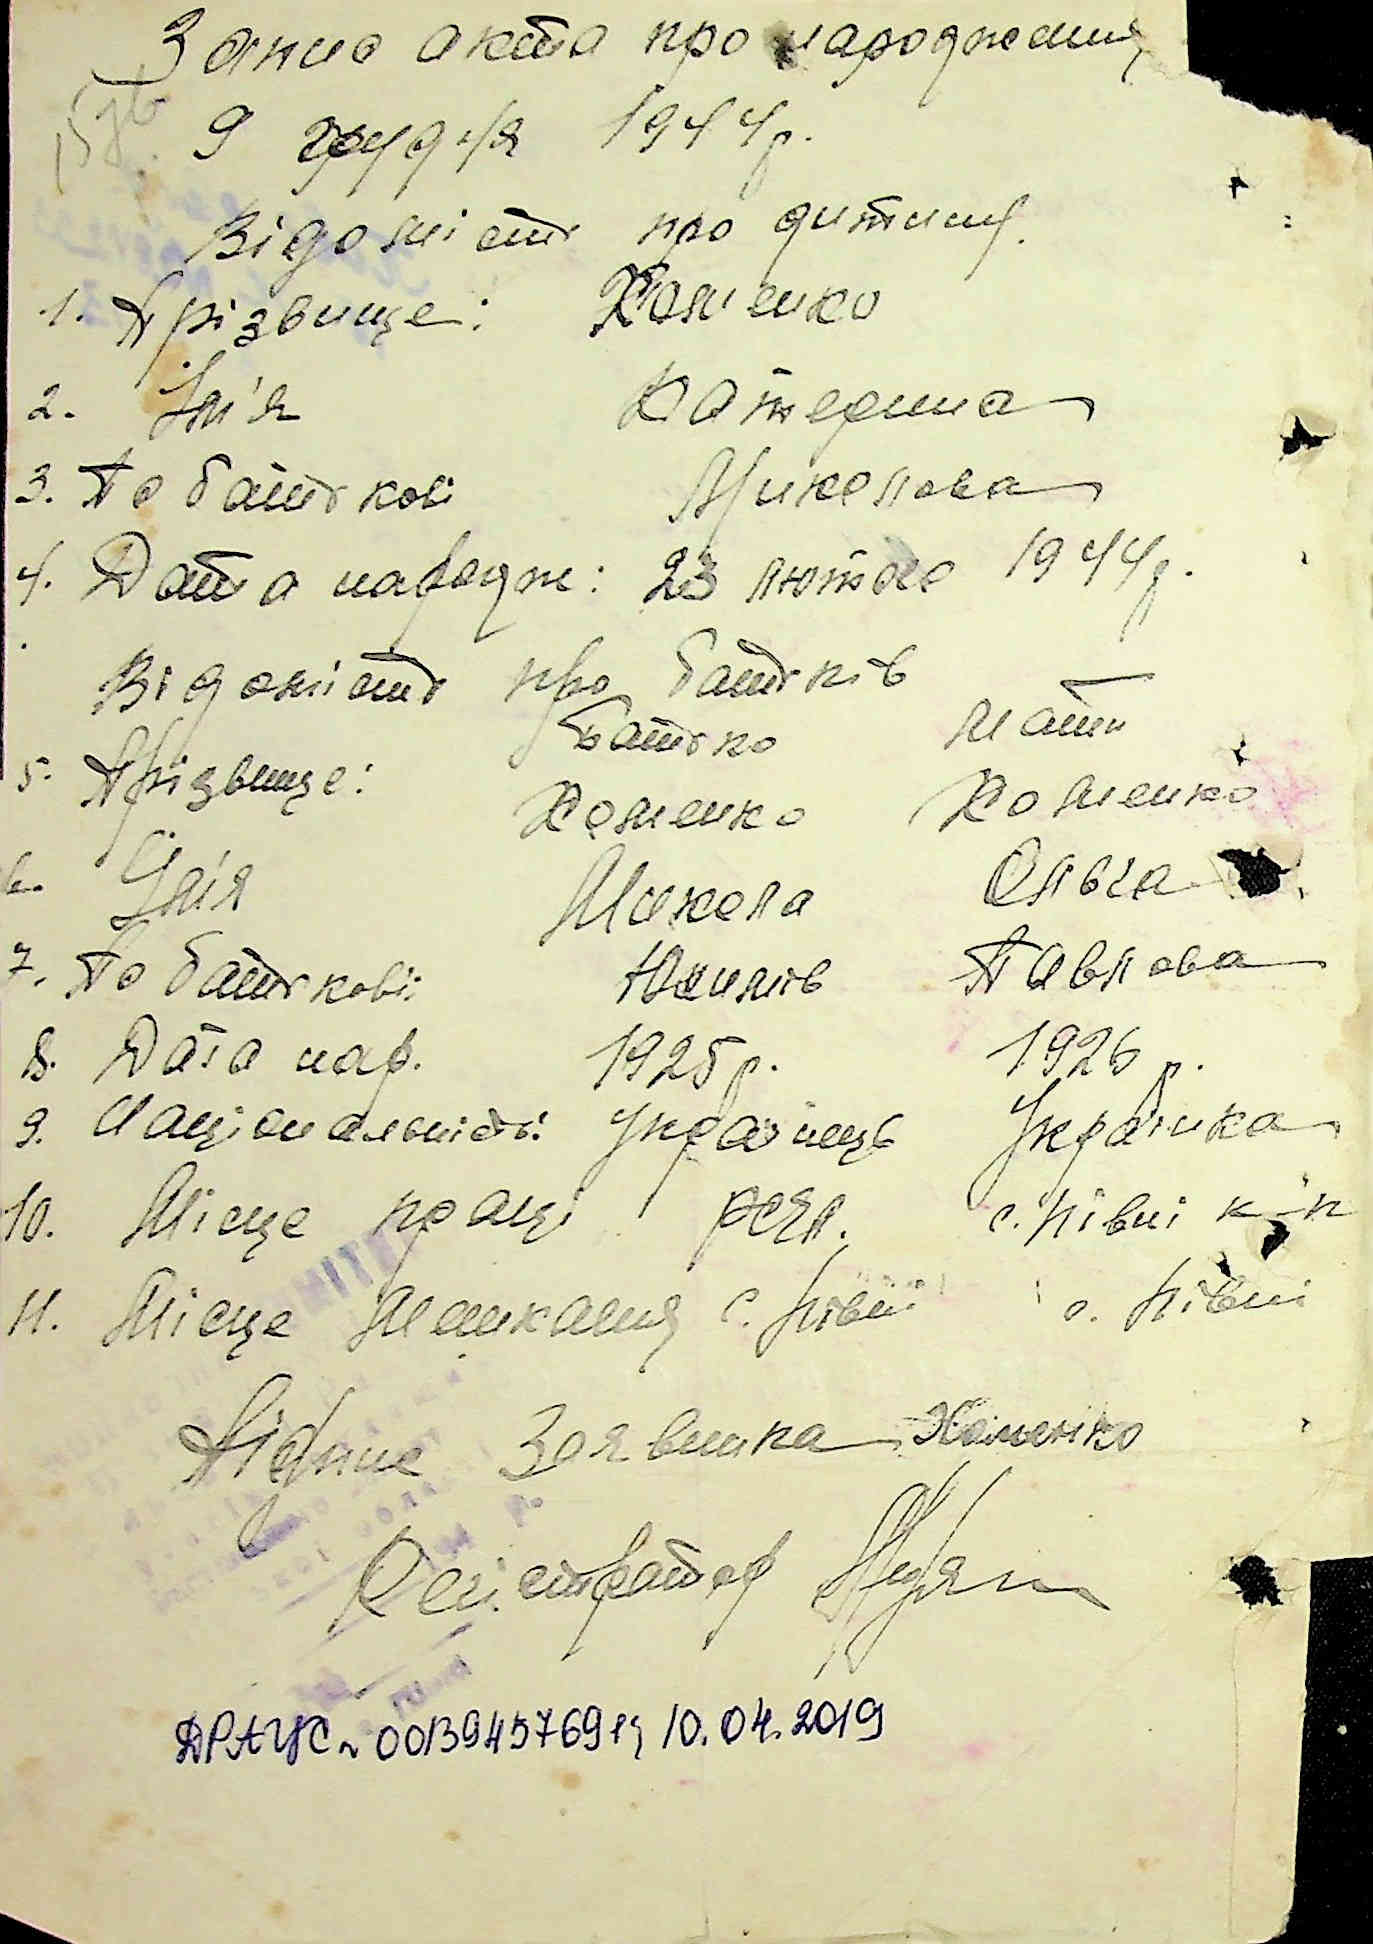 Запис акта про народження
9 грудня 1944р.
Відомість про дитину.
1. Прізвище: Хоменко
2. Їм'я Катерина
3. По батькові Миколова
4. Дата народж: 23 лютого 1944р.
Відомість про батьків
Батько Мати
5. Прізвище: Хоменко Хоменко
6. Їм'я Микола Ольга
7. По батькові: Павлова
8. Дата нар. 1925р. 1926р.
9. Національність: Українець Українка
10. Місце праці РСЧА. с. Півні к-п
11. Місце мешкання с. Півні с. Півні
Підпис Заявника Хоменко
Регістратор
ДРАЦС ~ 00139457691 10.04.2019